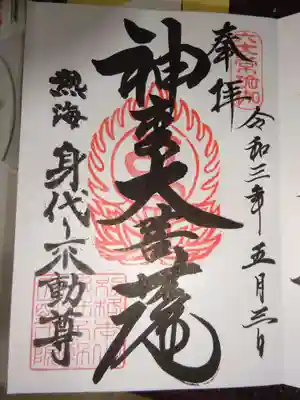 奉拝
令和三年五月三日
神変大菩薩
熱海
身代り不動尊